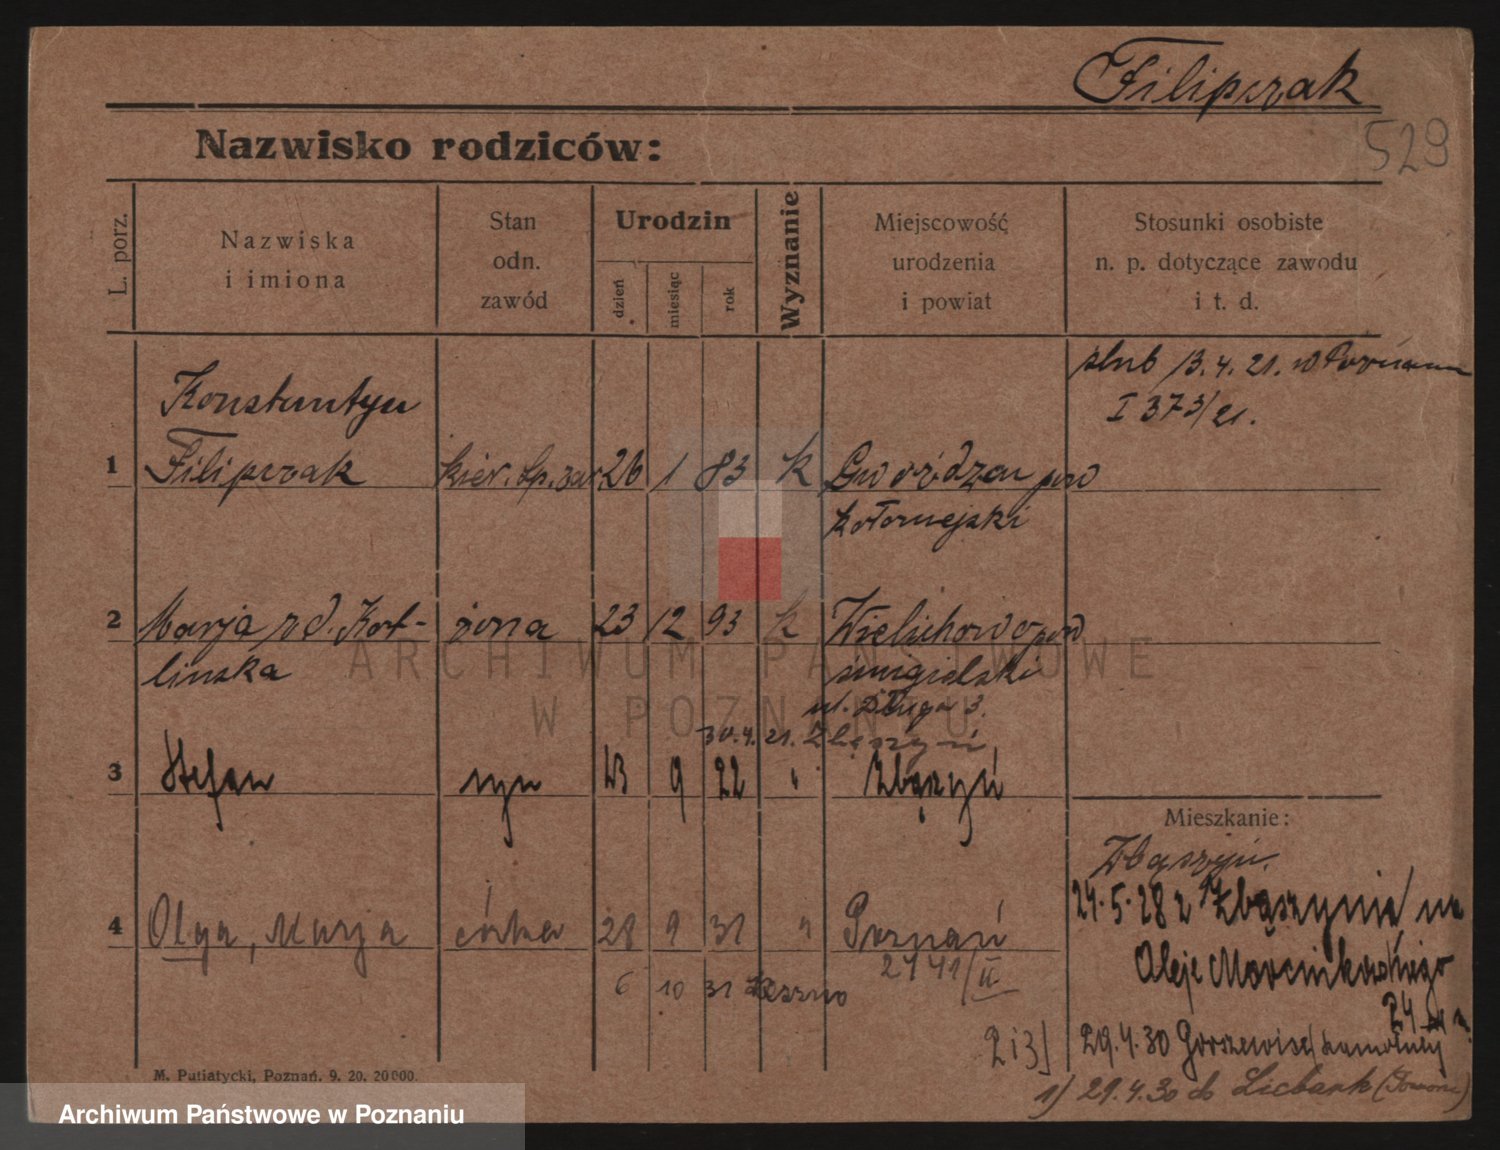 Filipczak
529
Nazwisko rodziców:
L. porz.
Nazwiska
i imiona
Stan
odn.
zawód
Urodzin
dzień
miesiąc
rok
Wyznanie
Miejscowość
urodzenia
i powiat
Stosunki osobiste
n. p. dotyczące zawodu
i t. d.
ślub 13.4.21. w Poznaniu
I 373/21.
Konstantyn
1 Filipczak kier. 26 1 83 k pow
kołomejski
2 Marja rd. Kot- żona 23 12 93 k Wielichowo pow
linska śmigielski
ul. Długa 3.
30.4.21. Zbąszyń
3 Stefan syn 23 9 22 " Zbąszyń
Mieszkanie:
Zbąszyń.
24.5.28 z Zbąszynia/ na
4 Olga, Marja córka 28 9 31 " Poznań
2741/II
Aleje Marcinkowskiego
24
6 10 31 Leszno
2i3) 29.4.30 Gorzewice/
1) 29.4.30 do
M. Putiatycki, Poznań. 9. 20. 20000.
ARCHIWUM PAŃSTWOWE
W POZNANIU
Archiwum Państwowe w Poznaniu